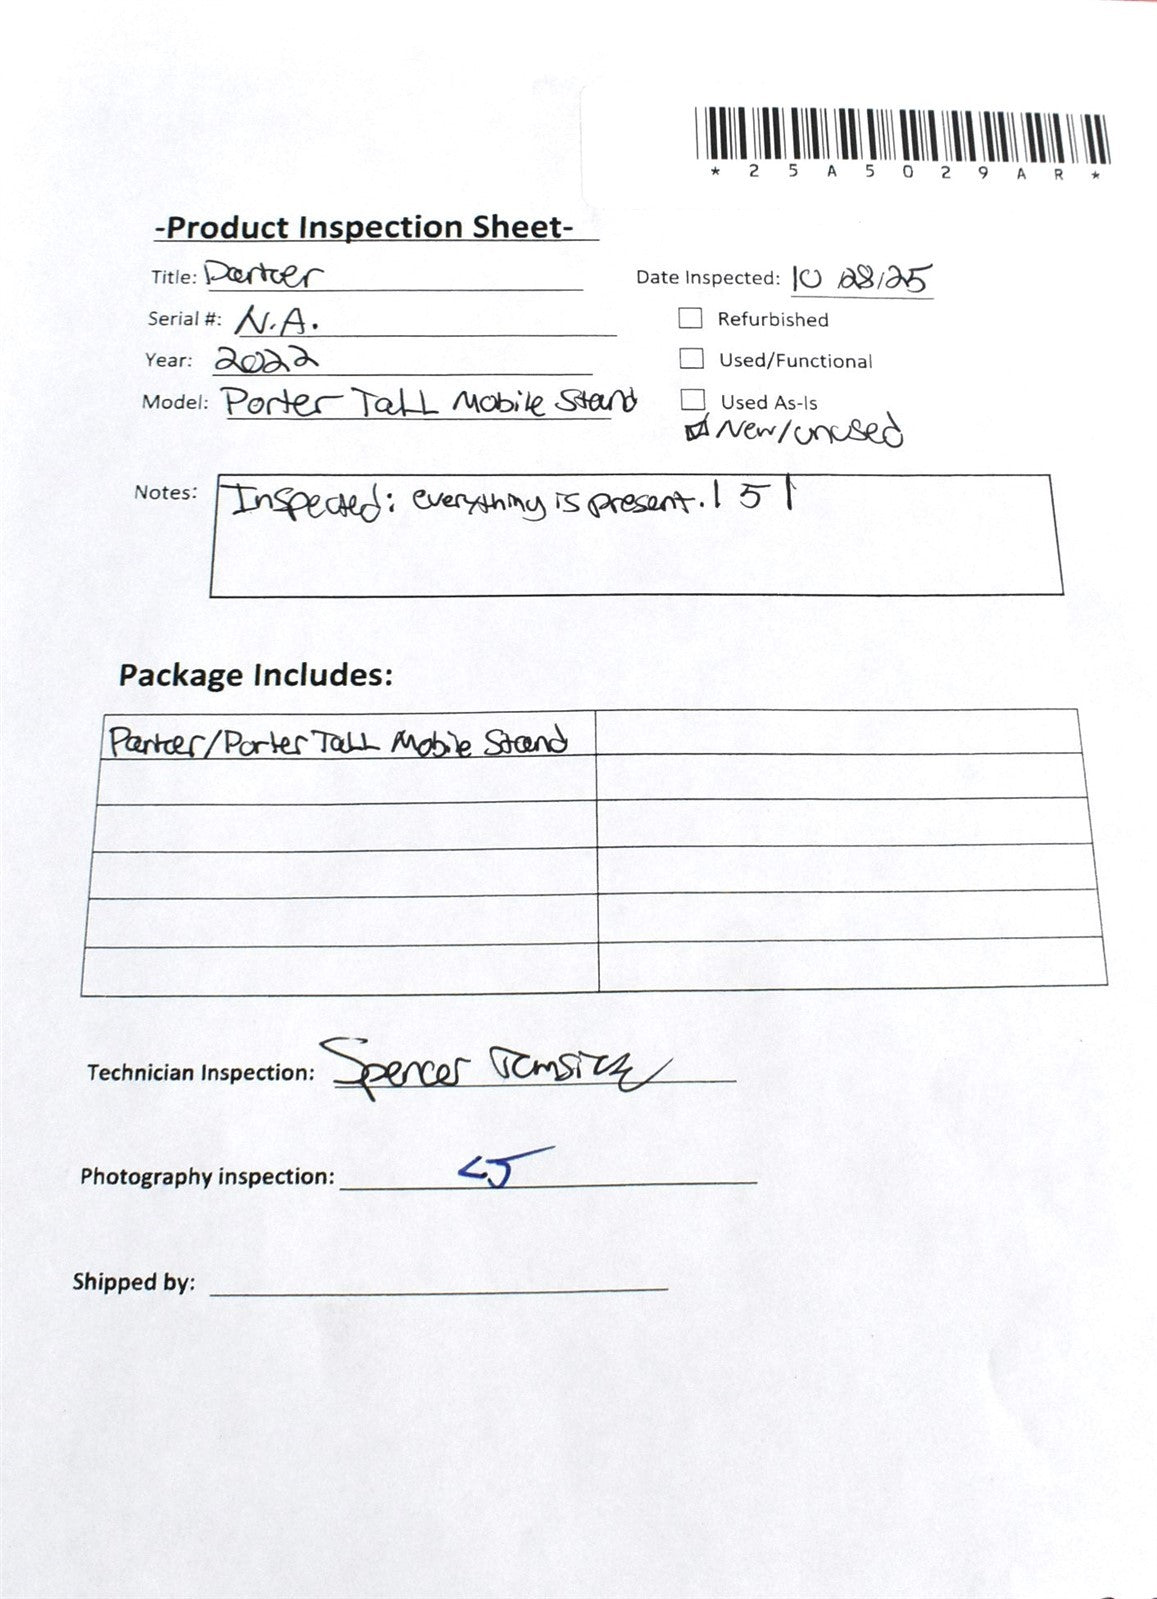 * 2 5 A 5 0 2 9 A R *
-Product Inspection Sheet-
Title: Partcer
Date Inspected: 10/28/25
Serial #: N.A.
Refurbished
Year: 2022
Used/Functional
Model: Porter Tall Mobile Stand
Used As-Is
New/unused
Notes: Inspected: everything is present. | 5 |
Package Includes:
Partcer/Porter Tall Mobile Stand
Technician Inspection: Spencer
Photography inspection:
Shipped by: